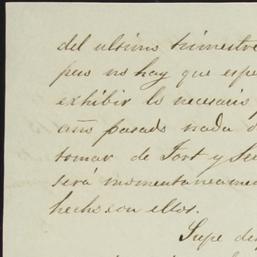 del ultimo trimestre
pero no hay que espe
exhibir lo necesario
año pasado nada d
tomar de Fort y See
será momentaneamen
hecho con ellos.
Supe de